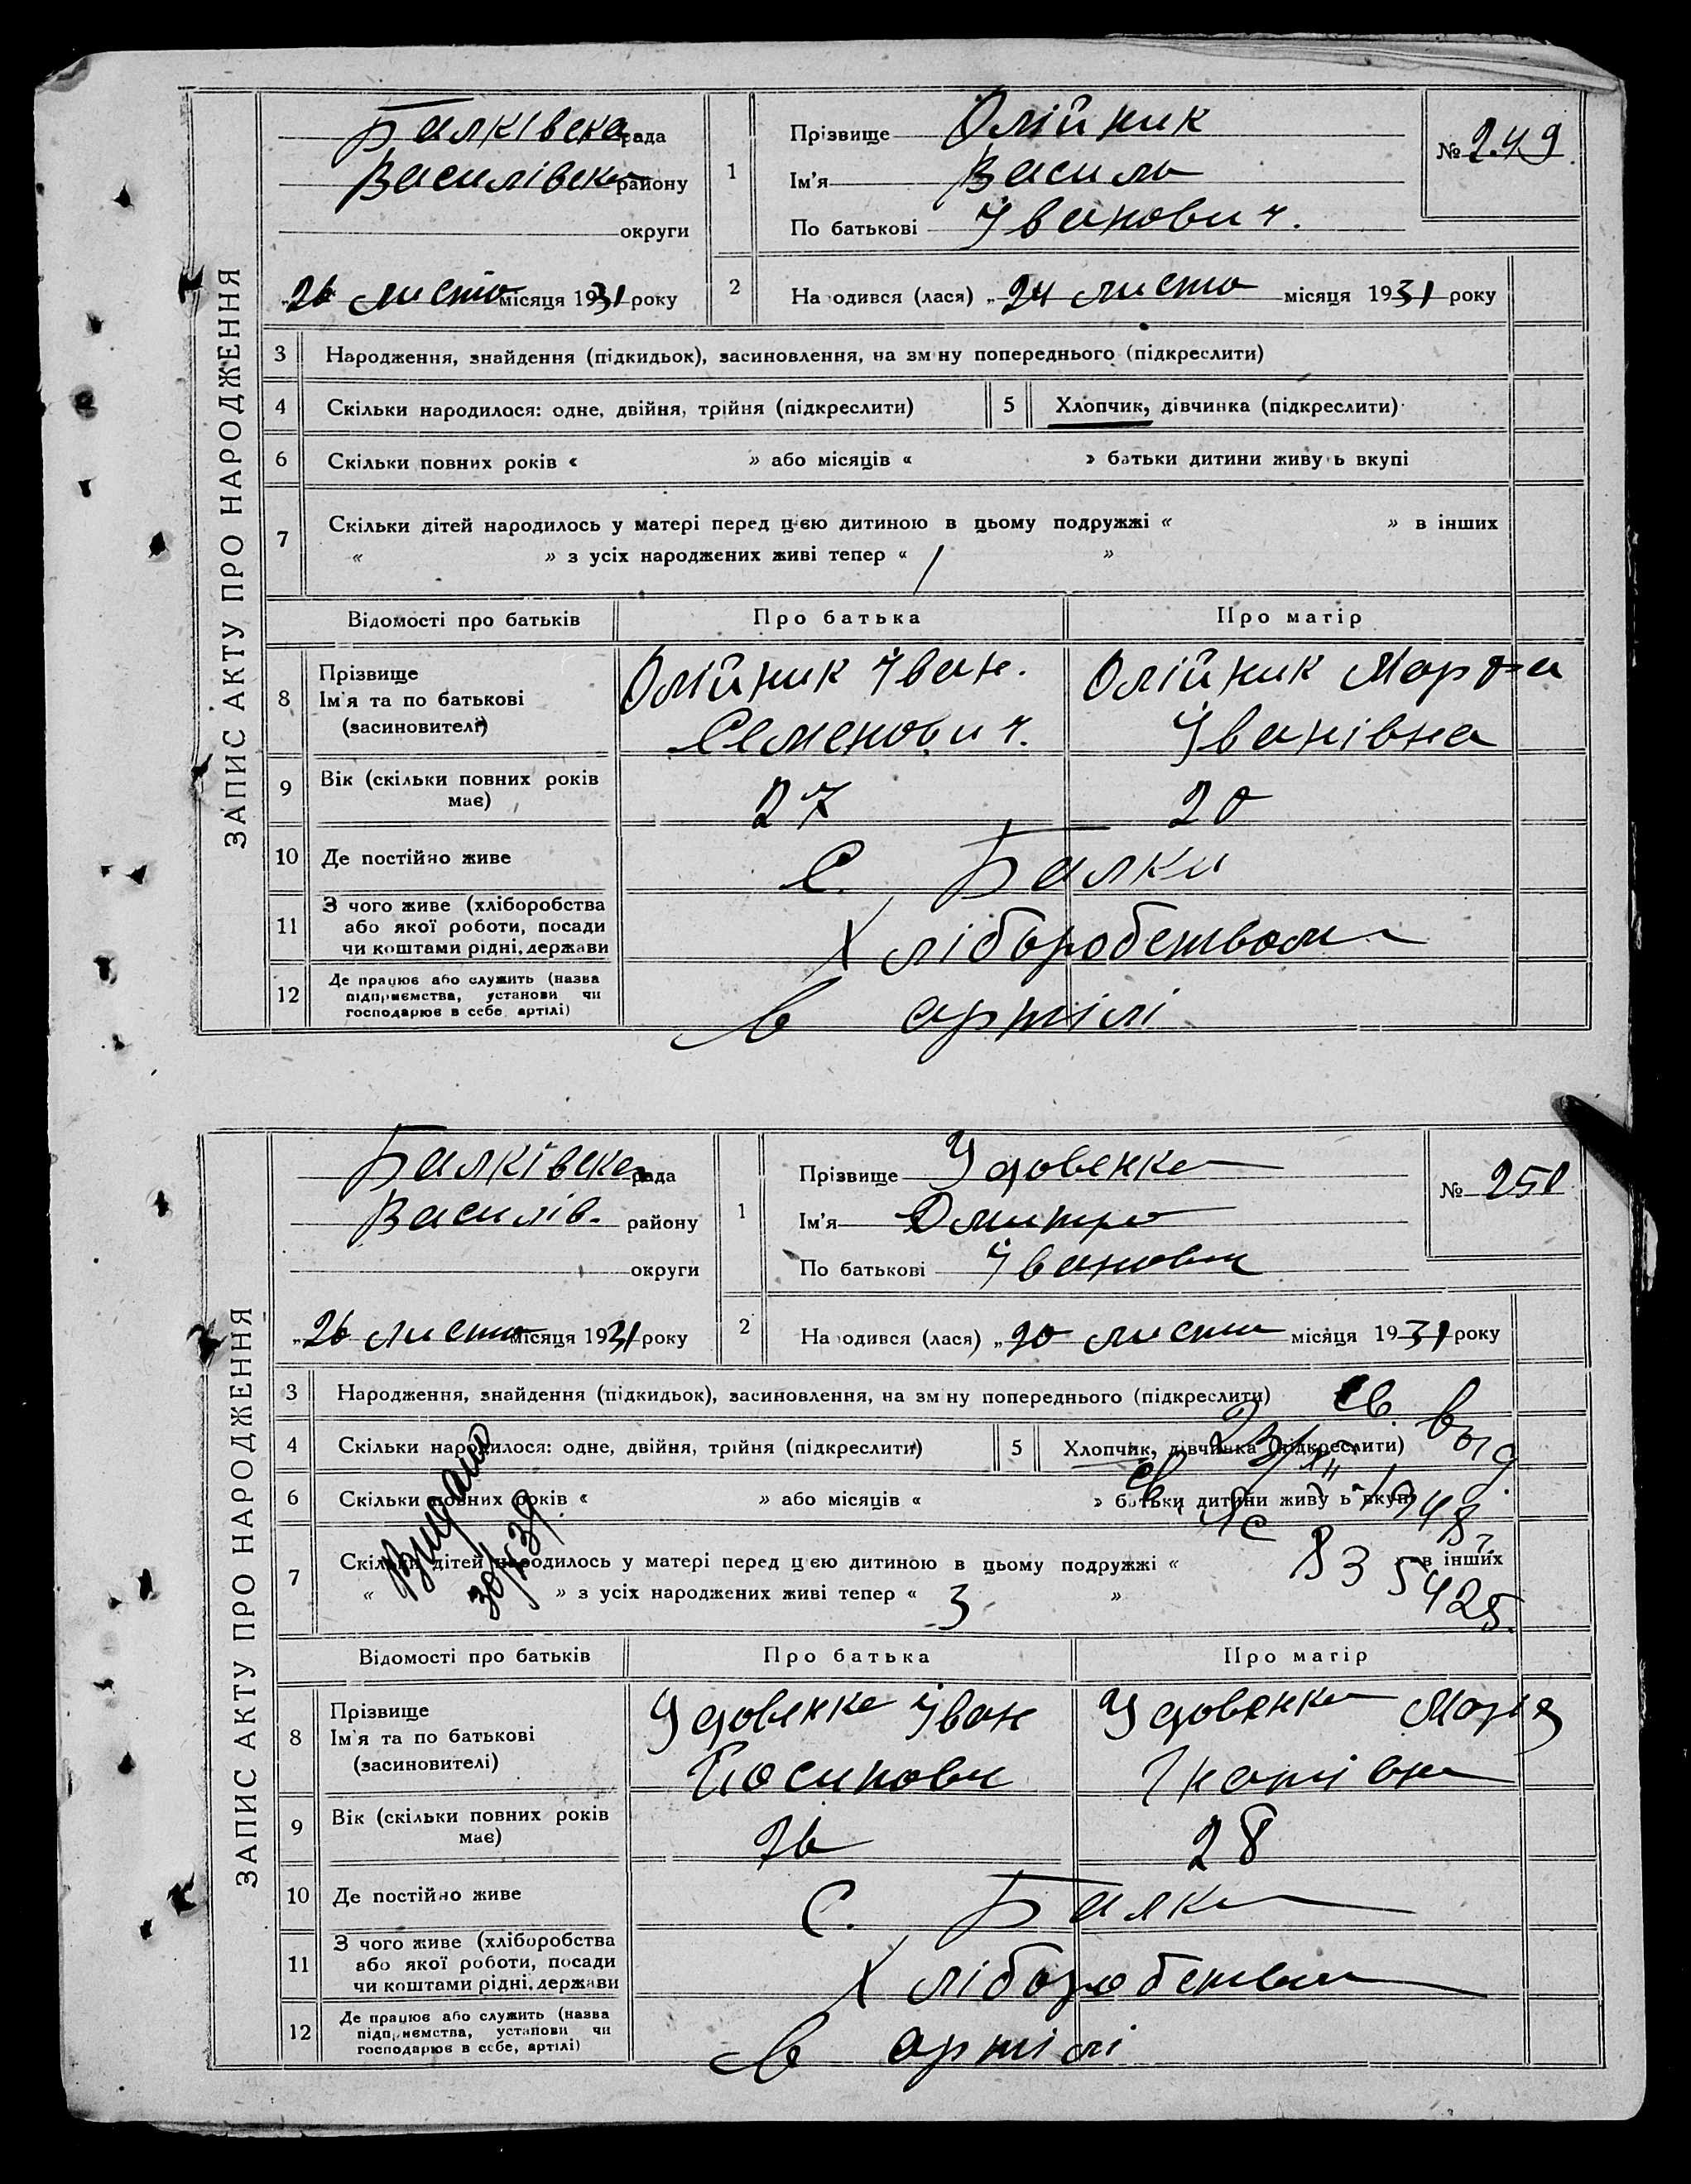 ЗАПИС АКТУ ПРО НАРОДЖЕННЯ
Балківська рада
Василівськ району
округи
„26 листо місяця 1931 року
1
Прізвище Олійник
Ім'я Василь
По батькові Іванович.
№ 249
2
На одився (лася) „24 листо місяця 1931 року
3 Народження, знайдення (підкидьок), засиновлення, на зм ну попереднього (підкреслити)
4 Скільки народилося: одне, двійня, трійня (підкреслити)
5 Хлопчик, дівчинка (підкреслити)
6 Скільки повних років « » або місяців « » батьки дитини живу ь вкупі
7 Скільки дітей народилось у матері перед цією дитиною в цьому подружжі « » в інших
« » з усіх народжених живі тепер « 1 »
Відомості про батьків Про батька Про матір
8 Прізвище
Ім'я та по батькові
(засиновителі)
Олійник Іван.
Семенович.
Олійник Марфа
Іванівна
9 Вік (скільки повних років
має)
27 20
10 Де постійно живе
С. Балки
11 З чого живе (хліборобства
або якої роботи, посади
чи коштами рідні, держави
Хліборобством
12 Де працює або служить (назва
підприємства, установи чи
господарює в себе, артілі)
в артілі
ЗАПИС АКТУ ПРО НАРОДЖЕННЯ
Балківська рада
Василів. району
округи
„26 листо місяця 1931 року
1
Прізвище Удовенко
Ім'я Дмитро
По батькові Іванович
№ 250
2
На одився (лася) „20 листо місяця 1931 року
3 Народження, знайдення (підкидьок), засиновлення, на зм ну попереднього (підкреслити)
4 Скільки народилося: одне, двійня, трійня (підкреслити)
5 Хлопчик, дівчинка (підкреслити)
св. выд
23/XII 1948
6 Скільки повних років « » або місяців « » батьки дитини живу ь вкупі
7 Скільки дітей народилось у матері перед цією дитиною в цьому подружжі « » в інших
« » з усіх народжених живі тепер « 3 »
Видано
835425
Відомості про батьків Про батька Про матір
8 Прізвище
Ім'я та по батькові
(засиновителі)
Удовенко Іван
Йосипови
Удовенко Марія
9 Вік (скільки повних років
має)
28
10 Де постійно живе
С. Балки
11 З чого живе (хліборобства
або якої роботи, посади
чи коштами рідні, держави
Хліборобством
12 Де працює або служить (назва
підприємства, установи чи
господарює в себе, артілі)
в артілі